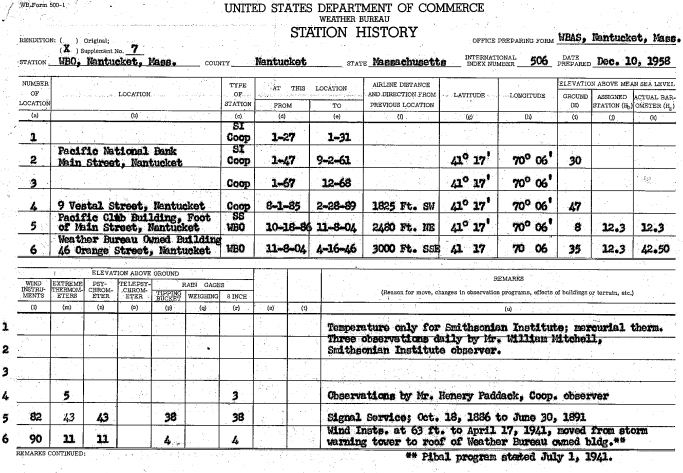 WB Form 500-1
UNITED STATES DEPARTMENT OF COMMERCE
WEATHER BUREAU
STATION HISTORY
RENDITION: ( ) Original;
(X) Supplement No. 7
OFFICE PREPARING FORM WBAS, Nantucket, Mass.
STATION WBO, Nantucket, Mass. COUNTY Nantucket STATE Massachusetts INTERNATIONAL INDEX NUMBER 506 DATE PREPARED Dec. 10, 1958
NUMBER OF LOCATION LOCATION TYPE OF STATION AT THIS LOCATION FROM TO AIRLINE DISTANCE AND DIRECTION FROM PREVIOUS LOCATION LATITUDE LONGITUDE ELEVATION ABOVE MEAN SEA LEVEL GROUND (H) ASSIGNED STATION (Hp) ACTUAL BAROMETER (Hz)
(a) (b) (c) (d) (e) (f) (g) (h) (i) (j) (k)
SI
1 Coop 1-27 1-31
Pacific National Bank SI
2 Main Street, Nantucket Coop 1-47 9-2-61 41° 17' 70° 06' 30
3 Coop 1-67 12-68 41° 17' 70° 06'
4 9 Vestal Street, Nantucket Coop 8-1-85 2-28-89 1825 Ft. SW 41° 17' 70° 06' 47
Pacific Club Building, Foot SS
5 of Main Street, Nantucket WBO 10-18-86 11-8-04 2480 Ft. NE 41° 17' 70° 06' 8 12.3 12.3
Weather Bureau Owned Building
6 46 Orange Street, Nantucket WBO 11-8-04 4-16-46 3000 Ft. SSE 41 17 70 06 35 12.3 42.50
ELEVATION ABOVE GROUND
WIND INSTRUMENTS EXTREME THERMOMETERS PSYCHROMETER TELEPSYCHROMETER RAIN GAGES TIPPING BUCKET WEIGHING 8 INCH REMARKS
(Reason for move, changes in observation programs, effects of buildings or terrain, etc.)
(l) (m) (n) (o) (p) (q) (r) (s) (t) (u)
1 Temperature only for Smithsonian Institute; mercurial therm.
Three observations daily by Mr. William Mitchell,
2 Smithsonian Institute observer.
3
4 5 3 Observations by Mr. Henery Paddack, Coop. observer
5 82 43 43 38 38 Signal Service; Oct. 18, 1886 to June 30, 1891
Wind Insts. at 63 ft. to April 17, 1941, moved from storm
6 90 11 11 4 4 warning tower to roof of Weather Bureau owned bldg.**
REMARKS CONTINUED: ** Pibal program stated July 1, 1941.